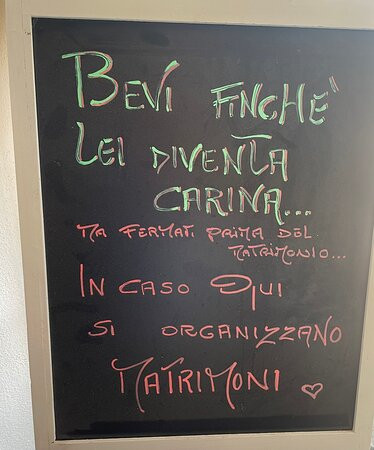 BEVI FINCHE'
LEI DIVENTA
CARINA...
MA FERMATI PRIMA DEL
MATRIMONIO...
IN CASO QUI
SI ORGANIZZANO
MATRIMONI ♡